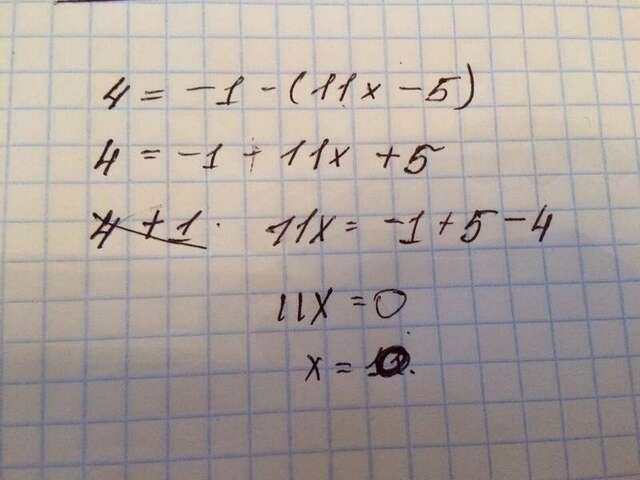 4 = -1 - (11x - 5)
4 = -1 - 11x + 5
4 + 1. 11x = -1 + 5 - 4
11x = 0
x = 0.